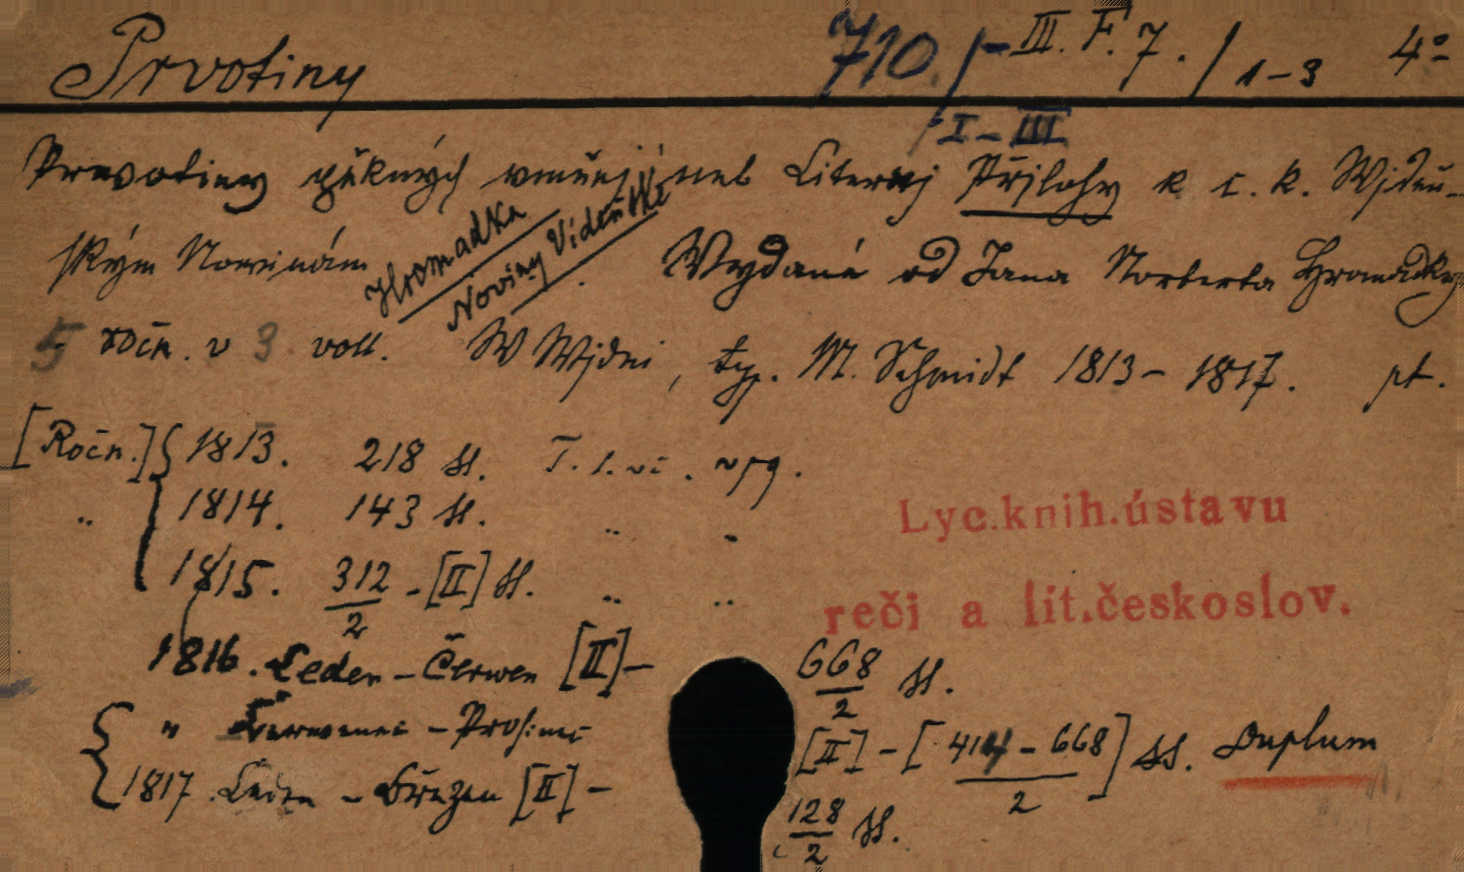 Prvotiny 710./-III. F. 7./1-3 4°
I-III
Prwotiny pěkných uměnj neb Liternj Přjlohy k c. k. Wjdeň-
ským Nowinám Hromádka Noviny Vídeňské Wydané od Jana Norberta Hromádky
5 ročn. v 3 voll. W Wjdni, typ. M. Schmidt 1813-1817. pt.
[Ročn.] { 1813. 218 ss.
" 1814. 143 ss. " "
1815. 312/2 - [II] ss. " "
1816. Leden - Čerwen [II] - 668/2 ss.
{ " Červenec - Prosinec [II] - [414 - 668/2] ss. Duplum
1817. Leden - Březen [II] - 128/2 ss.
Lyc.knih.ústavu
reči a lit.českoslov.